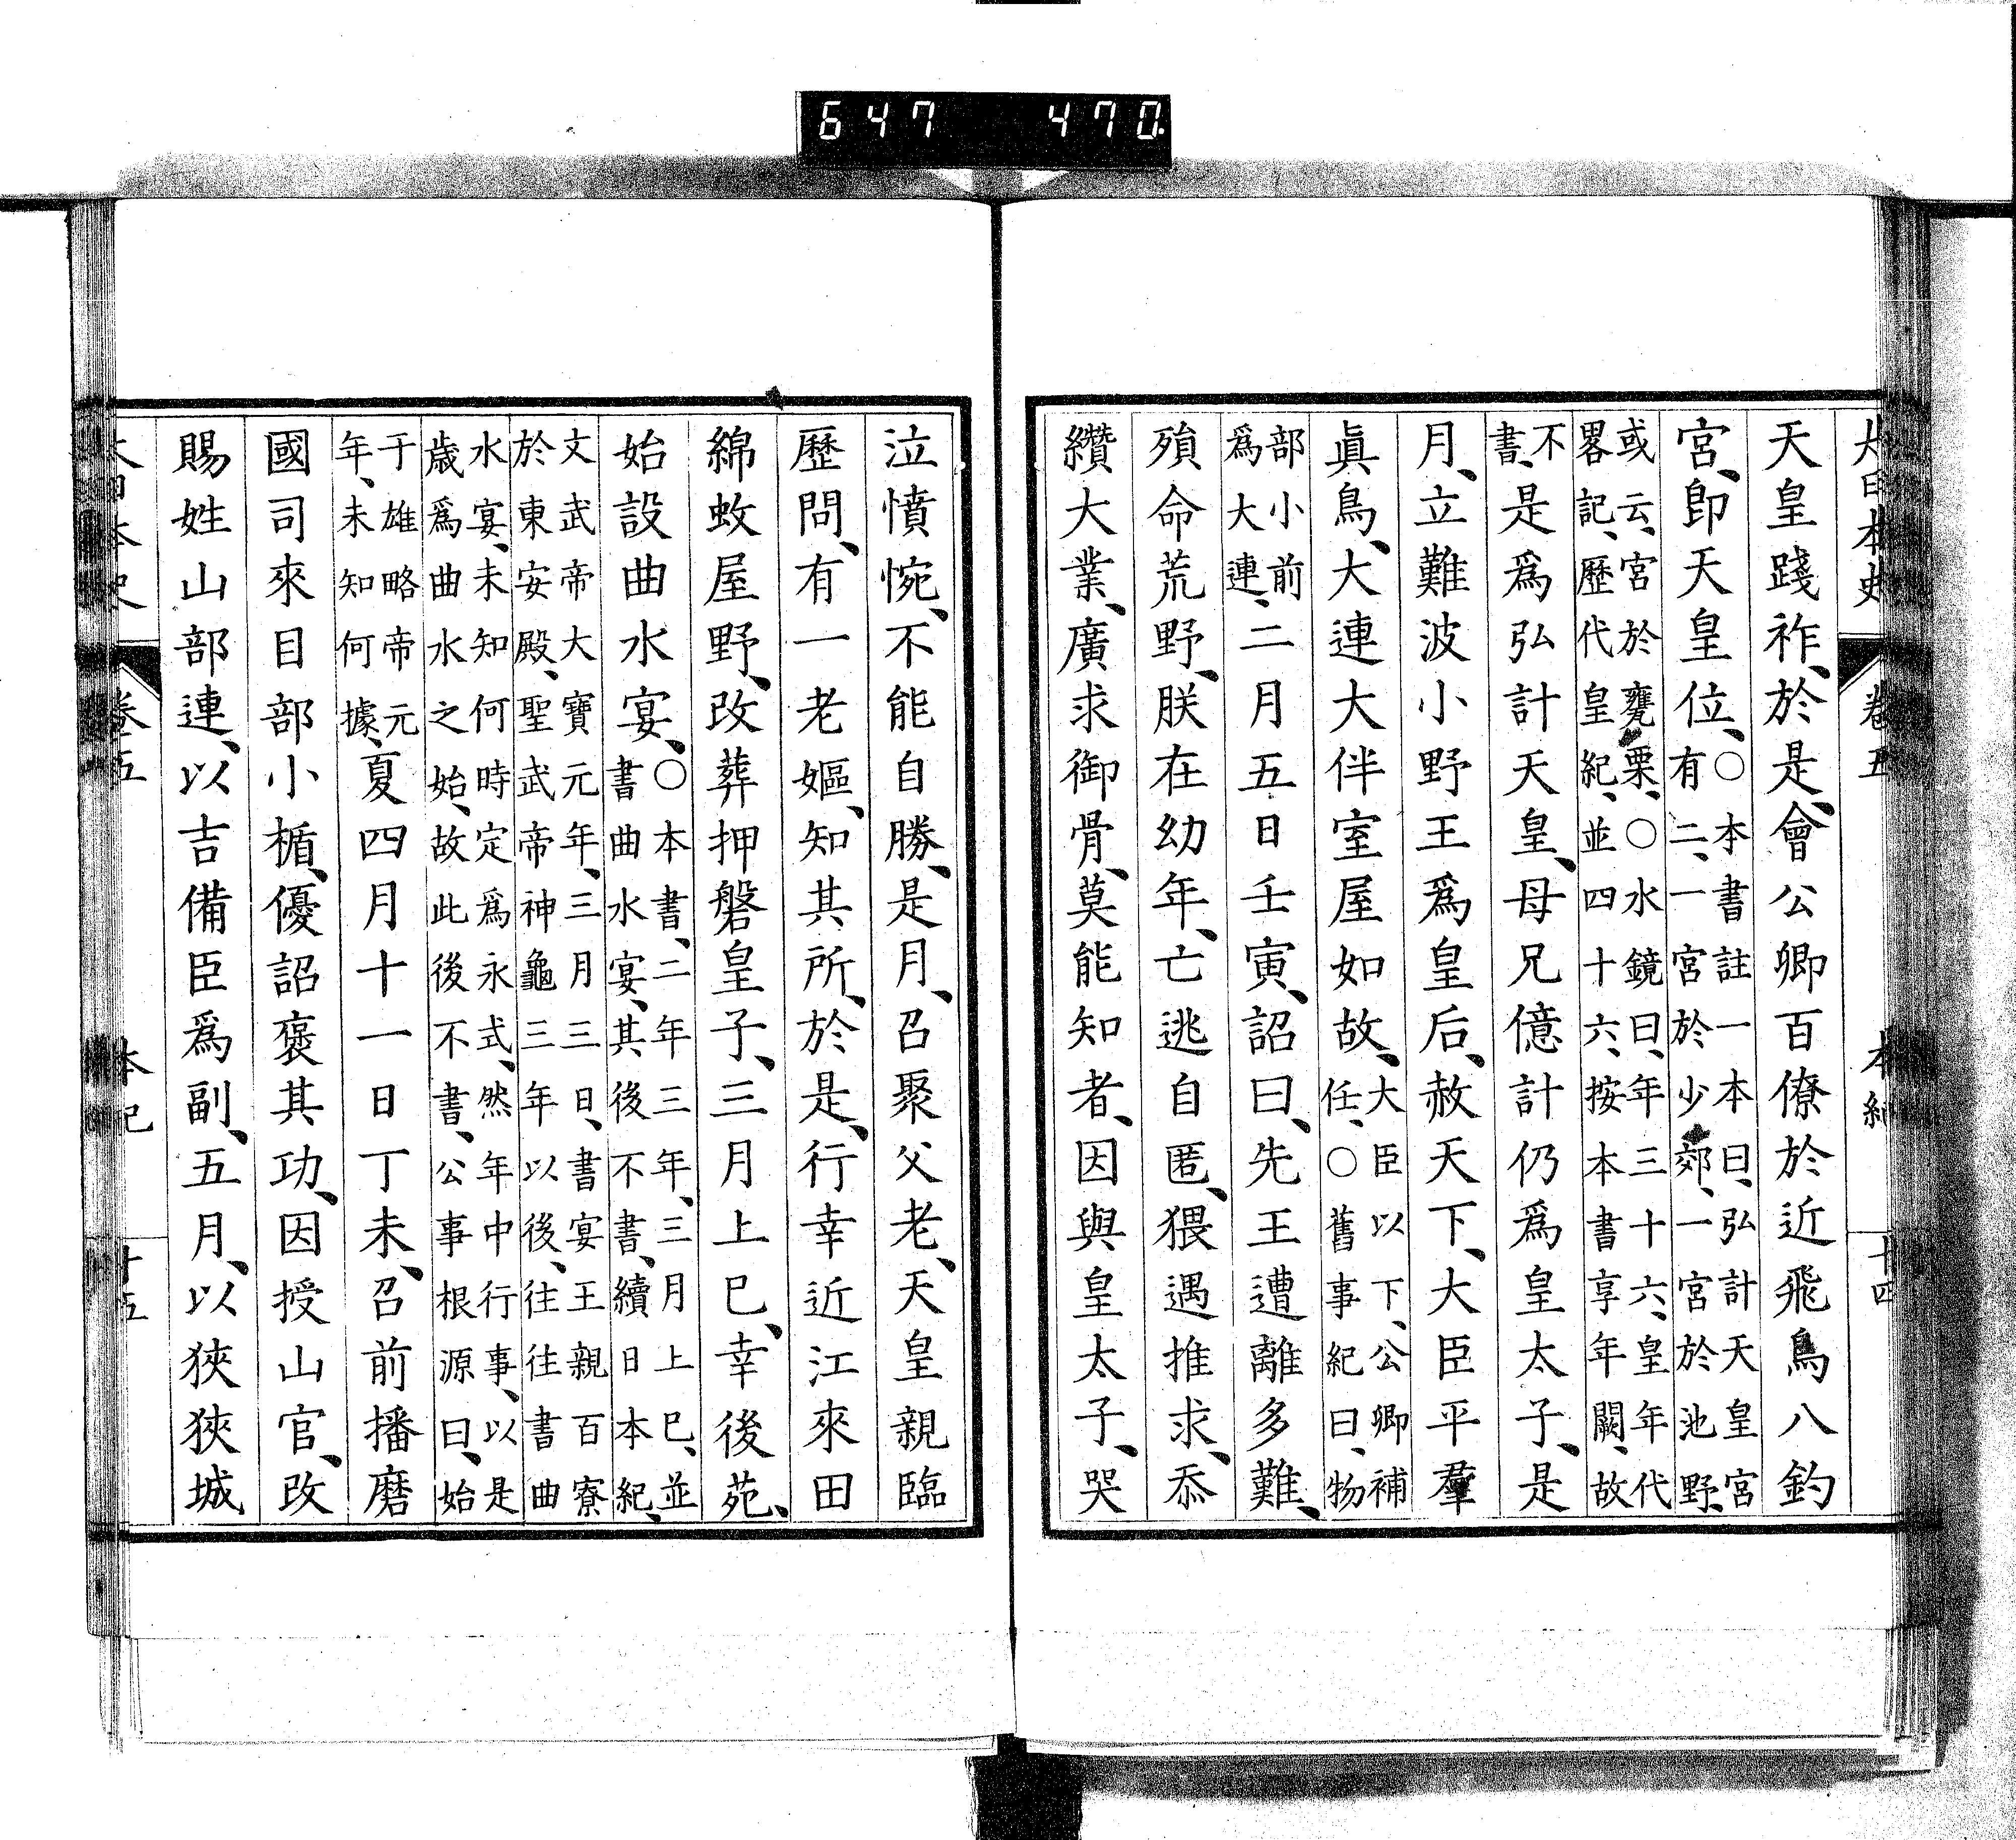 647 470
大日本史 卷五 本紀 十四
天皇踐祚、於是、會公卿百僚於近飛鳥八釣
宮、卽天皇位、○本書註一本曰、弘計天皇宮有二、一宮於少郊、一宮於池野、
或云、宮於甕栗、○水鏡曰、年三十六、皇年代畧記、歷代皇紀、並四十六、按本書享年闕、故
不書、是爲弘計天皇、母兄億計仍爲皇太子、是
月、立難波小野王爲皇后、赦天下、大臣平羣
眞鳥、大連大伴室屋如故、大臣以下、公卿補任、○舊事紀曰、物
部小前爲大連、二月五日壬寅、詔曰、先王遭離多難、
殞命荒野、朕在幼年、亡逃自匿、猥遇推求、忝
纘大業、廣求御骨、莫能知者、因與皇太子、哭
泣憤惋、不能自勝、是月、召聚父老、天皇親臨
歷問、有一老嫗、知其所、於是、行幸近江來田
綿蚊屋野、改葬押磐皇子、三月上巳、幸後苑、
始設曲水宴、○本書、二年三年、三月上巳、並書曲水宴、其後不書、續日本紀、
文武帝大寶元年、三月三日、書宴王親百寮於東安殿、聖武帝神龜三年以後、往往書曲
水宴、未知何時定爲永式、然年中行事、以是歲爲曲水之始、故此後不書、公事根源曰、始
于雄略帝元年、未知何據、夏四月十一日丁未、召前播磨
國司來目部小楯、優詔褒其功、因授山官、改
賜姓山部連、以吉備臣爲副、五月、以狹狹城
大日本史 卷五 本紀 十五